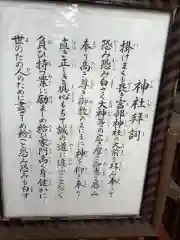 神社拝詞
掛けまくも畏き宮部神社の大前を拝み奉りて
恐み恐み白さく大神等の広き厚き御恵を辱み
奉り高き尊き神教のまにまに神を仰ぎ奉り
直き正しき真心もちて誠の道に違ふことなく
負ひ持つ業に励ましめ給ひ家門高く身健かに
世のため人のために尽さしめ給へと恐み恐みも白す